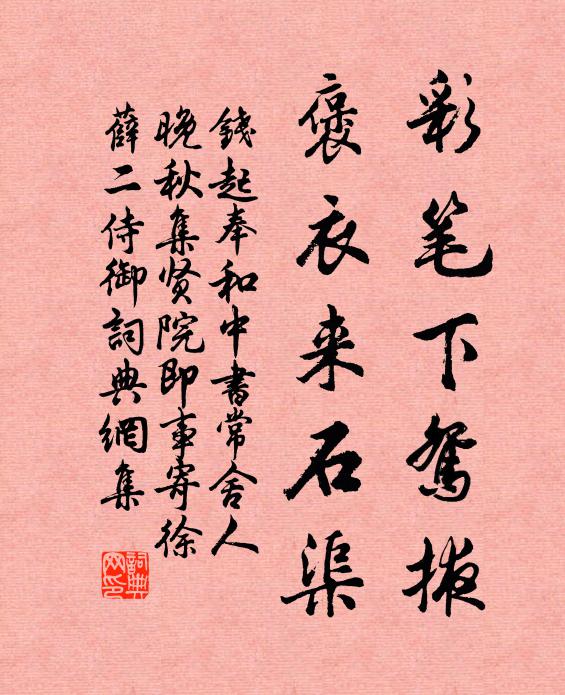 彩笔下鸳掖
褒衣来石渠
錢起奉和中書常舍人
晚秋集贤院即事寄徐
薛二侍御詞典網集
詞典网印